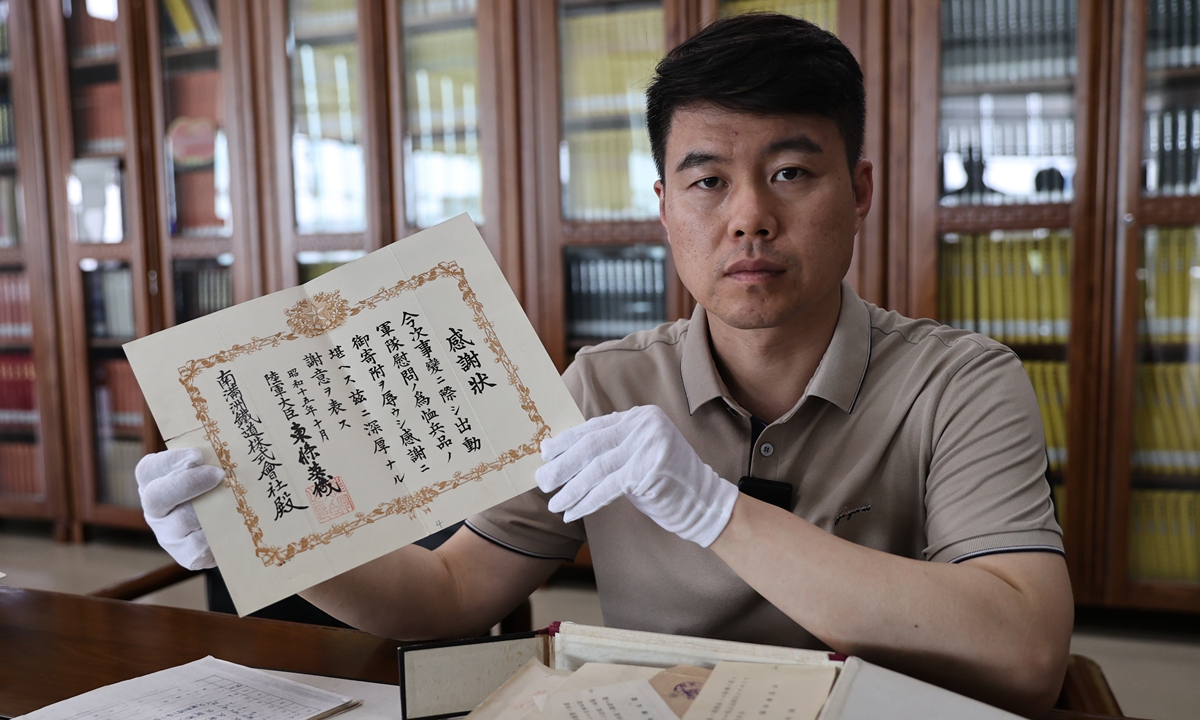 感謝狀
今次事變ニ際シ出動
軍隊慰問ノ為恤兵品ノ
御寄附ヲ辱ウシ感謝ニ
堪ヘス茲ニ深厚ナル
謝意ヲ表ス
昭和十五年十月
陸軍大臣 東條英機
南滿洲鐵道株式會社殿